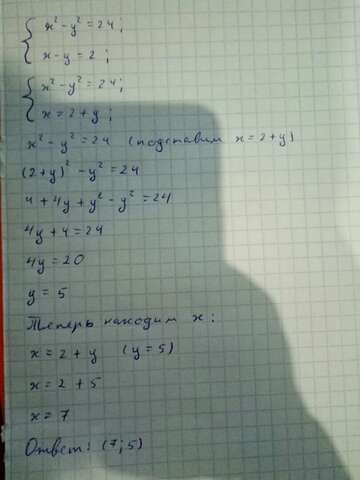 x² - y² = 24;
x - y = 2;
x² - y² = 24;
x = 2 + y;
x² - y² = 24 (подставим x = 2 + y)
(2 + y)² - y² = 24
4 + 4y + y² - y² = 24
4y + 4 = 24
4y = 20
y = 5
Теперь находим x:
x = 2 + y (y = 5)
x = 2 + 5
x = 7
Ответ: (7; 5)